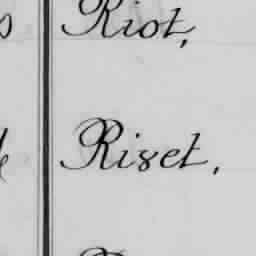 Riot,
Riset,